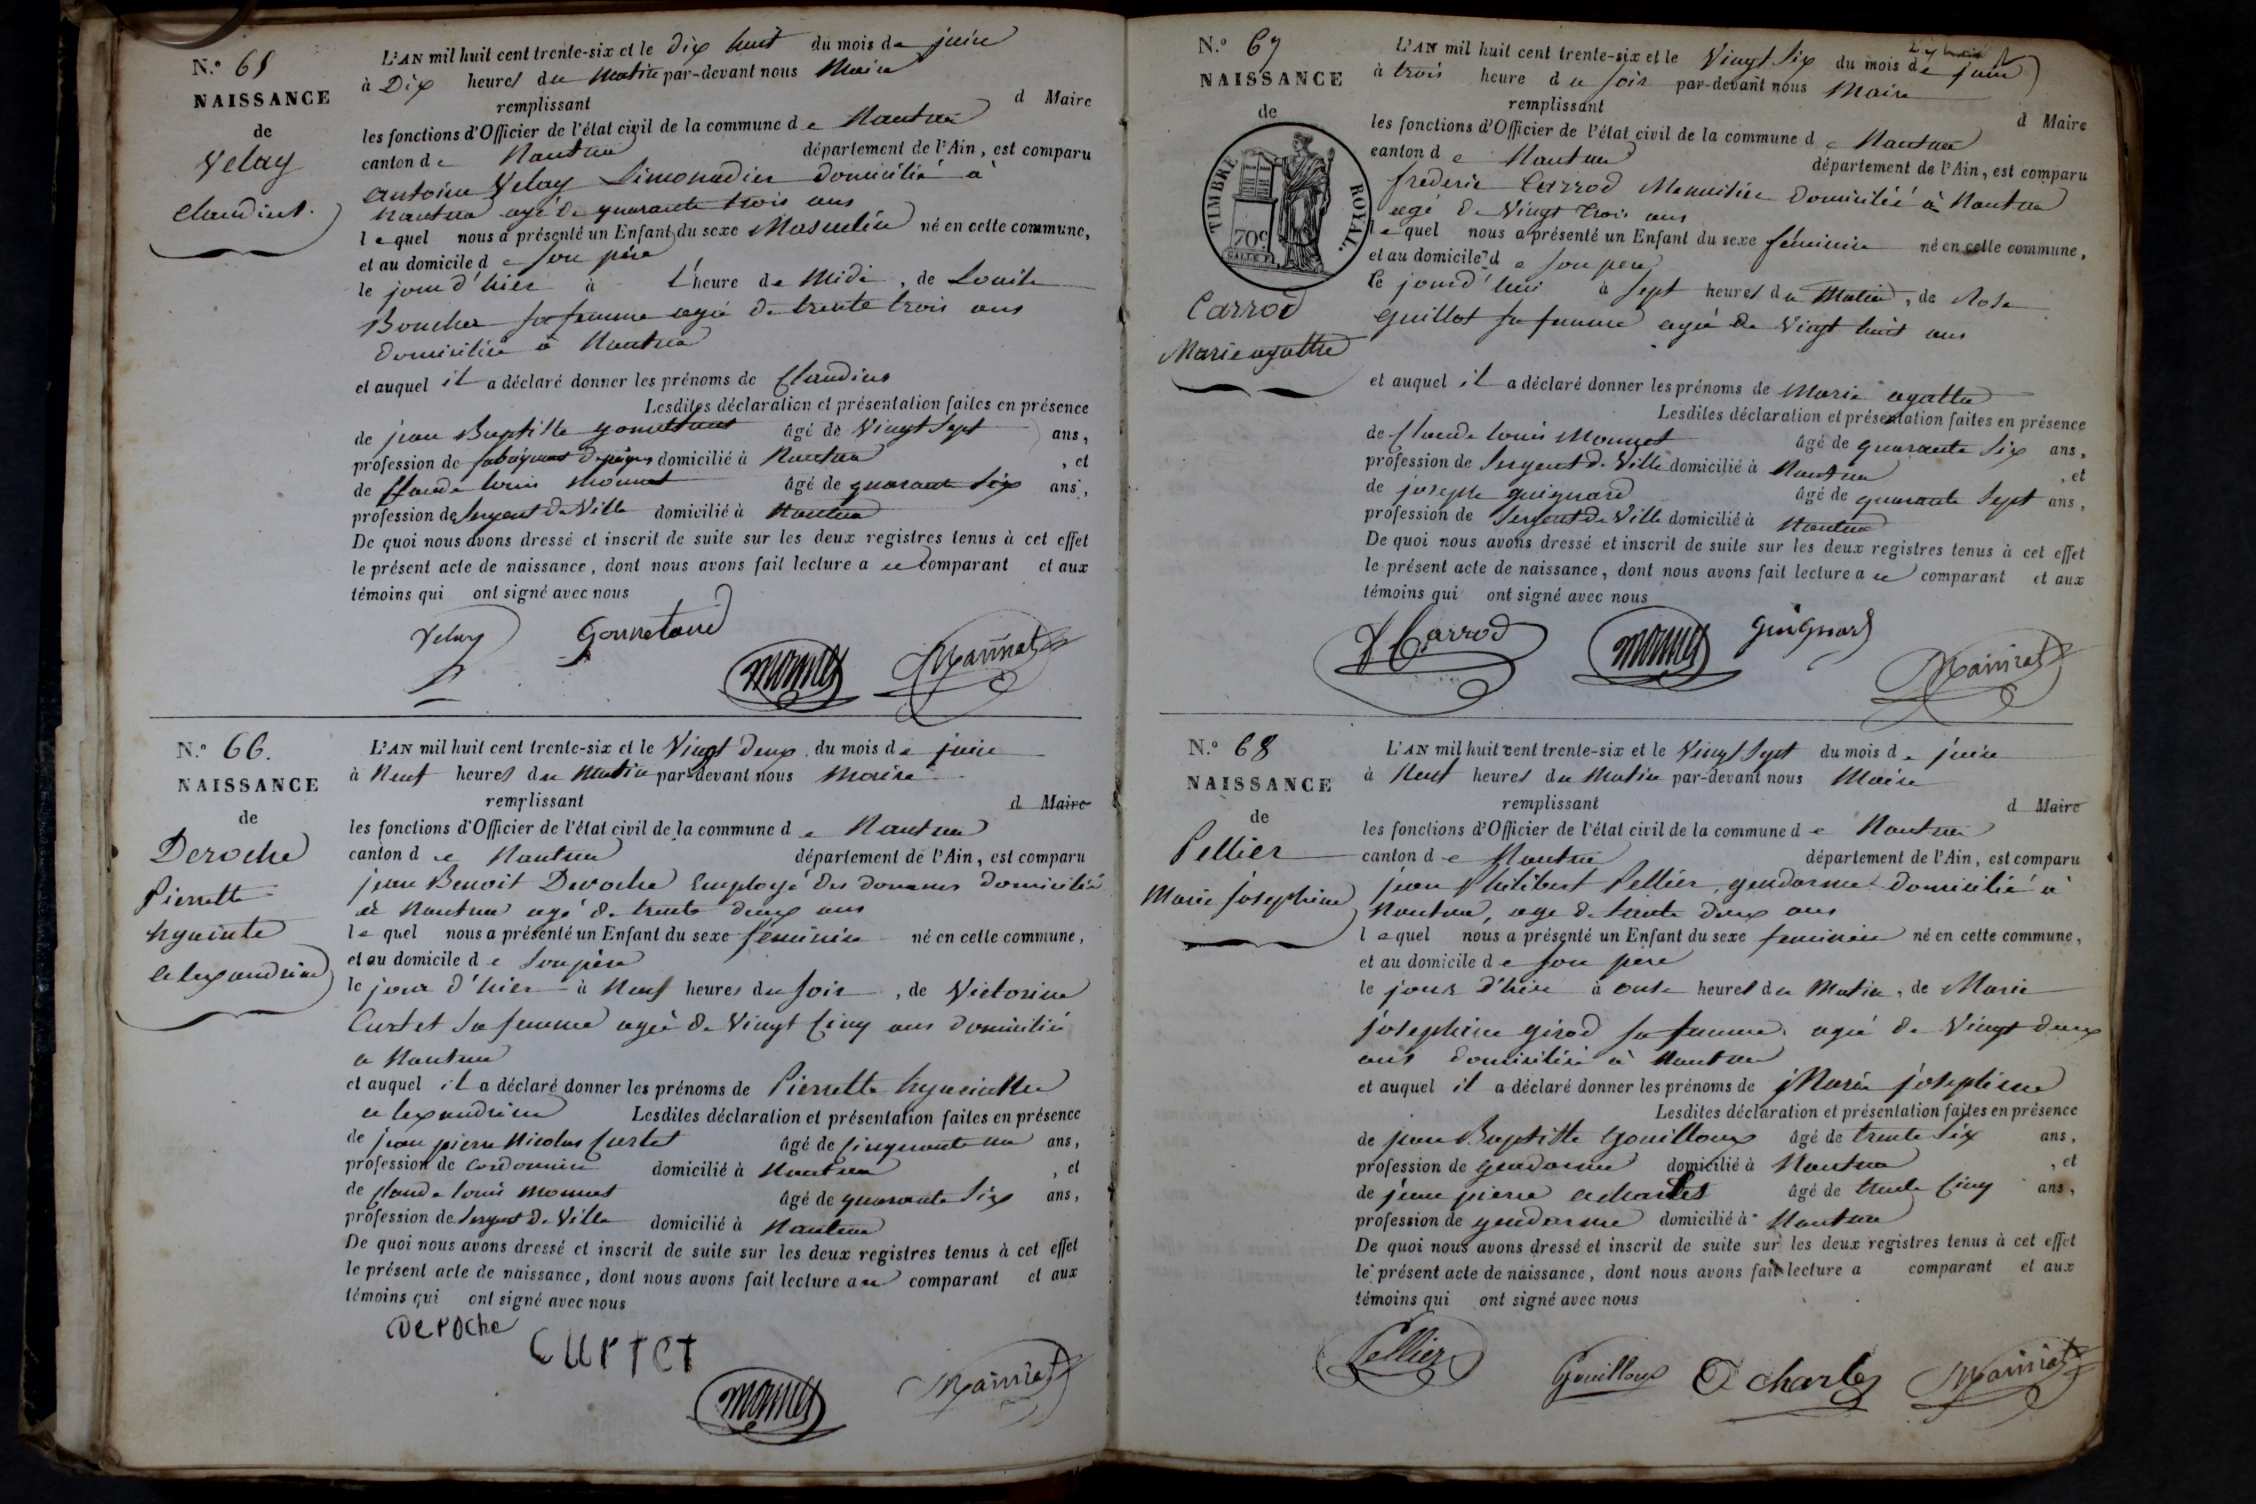 N.° 65
NAISSANCE
de
Velay
Claudius.
L'AN mil huit cent trente-six et le dix huit du mois de juin
à Dix heures du Matin par-devant nous Maire
remplissant d Maire
les fonctions d'Officier de l'état civil de la commune de Nantua
canton de Nantua département de l'Ain, est comparu
antoine Velay Limonadier domicilié à
Nantua agé de quarante trois ans
lequel nous a présenté un Enfant du sexe Masculin né en cette commune,
et au domicile de son père
le jour d'hier à l'heure de Midi, de Louise
Boucher sa femme agée de trente trois ans
domiciliée à Nantua
et auquel il a déclaré donner les prénoms de Claudius
Lesdites déclaration et présentation faites en présence
de jean Baptiste gonnetand âgé de Vingt Sept ans,
profession de domicilié à Nantua, et
de Claude louis Monnet âgé de quarante Six ans,
profession de Sergent de Ville domicilié à Nantua
De quoi nous avons dressé et inscrit de suite sur les deux registres tenus à cet effet
le présent acte de naissance, dont nous avons fait lecture a ce comparant et aux
témoins qui ont signé avec nous
Velay Gonnetand Monnet
N.° 66.
NAISSANCE
de
Deroche
Pierrette
hyacinte
alexandrine
L'AN mil huit cent trente-six et le Vingt deux du mois de juin
à Neuf heures du Matin par-devant nous Maire
remplissant d Maire
les fonctions d'Officier de l'état civil de la commune de Nantua
canton de Nantua département de l'Ain, est comparu
jean Benoit Deroche Employé des douanes domicilié
à Nantua agé de trente deux ans
lequel nous a présenté un Enfant du sexe féminin né en cette commune,
et au domicile de son père
le jour d'hier à Neuf heures du soir, de Victorine
Curtet sa femme agée de Vingt Cinq ans domiciliée
a Nantua
et auquel il a déclaré donner les prénoms de Pierrette hyacinthe
alexandrine Lesdites déclaration et présentation faites en présence
de jean pierre Nicolas Curtet âgé de Cinquante un ans,
profession de Cordonnier domicilié à Nantua, et
de Claude louis Monnet âgé de quarante Six ans,
profession de Sergent de Ville domicilié à Nantua
De quoi nous avons dressé et inscrit de suite sur les deux registres tenus à cet effet
le présent acte de naissance, dont nous avons fait lecture a ce comparant et aux
témoins qui ont signé avec nous
Deroche Curtet Monnet
N.° 67
NAISSANCE
de
TIMBRE ROYAL.
70c
Carrod
Marie agathe
L'AN mil huit cent trente-six et le Vingt Six du mois de juin
à trois heure du soir par-devant nous Maire
remplissant d Maire
les fonctions d'Officier de l'état civil de la commune de Nantua
canton de Nantua département de l'Ain, est comparu
frederic Carrod Menuisier domicilié à Nantua
agé de Vingt trois ans
lequel nous a présenté un Enfant du sexe féminin né en cette commune,
et au domicile de son pere
le jourd'hui à sept heures du Matin, de Rose
Guillot sa femme agée de Vingt huit ans
et auquel il a déclaré donner les prénoms de Marie agathe
Lesdites déclaration et présentation faites en présence
de Claude louis Monnet âgé de quarante Six ans,
profession de Sergent de Ville domicilié à Nantua, et
de joseph guignard âgé de quarante Sept ans,
profession de Sergent de Ville domicilié à Nantua
De quoi nous avons dressé et inscrit de suite sur les deux registres tenus à cet effet
le présent acte de naissance, dont nous avons fait lecture a ce comparant et aux
témoins qui ont signé avec nous
Carrod Monnet Guignard
N.° 68
NAISSANCE
de
Pellier
Marie Josephine
L'AN mil huit cent trente-six et le Vingt Sept du mois de juin
à Neuf heures du Matin par-devant nous Maire
remplissant d Maire
les fonctions d'Officier de l'état civil de la commune de Nantua
canton de Nantua département de l'Ain, est comparu
jean Philibert Pellier, gendarme domicilié à
Nantua, age de trente deux ans
lequel nous a présenté un Enfant du sexe feminin né en cette commune,
et au domicile de son pere
le jour d'hier à onze heures du Matin, de Marie
josephine girod sa femme, agée de Vingt deux
ans domiciliée à Nantua
et auquel il a déclaré donner les prénoms de Marie josephine
Lesdites déclaration et présentation faites en présence
de jean Baptiste Gouilloux âgé de trente Six ans,
profession de gendarme domicilié à Nantua, et
de jean pierre acharles âgé de trente Cinq ans,
profession de gendarme domicilié à Nantua
De quoi nous avons dressé et inscrit de suite sur les deux registres tenus à cet effet
le présent acte de naissance, dont nous avons fait lecture a comparant et aux
témoins qui ont signé avec nous
Pellier Gouilloux Acharles